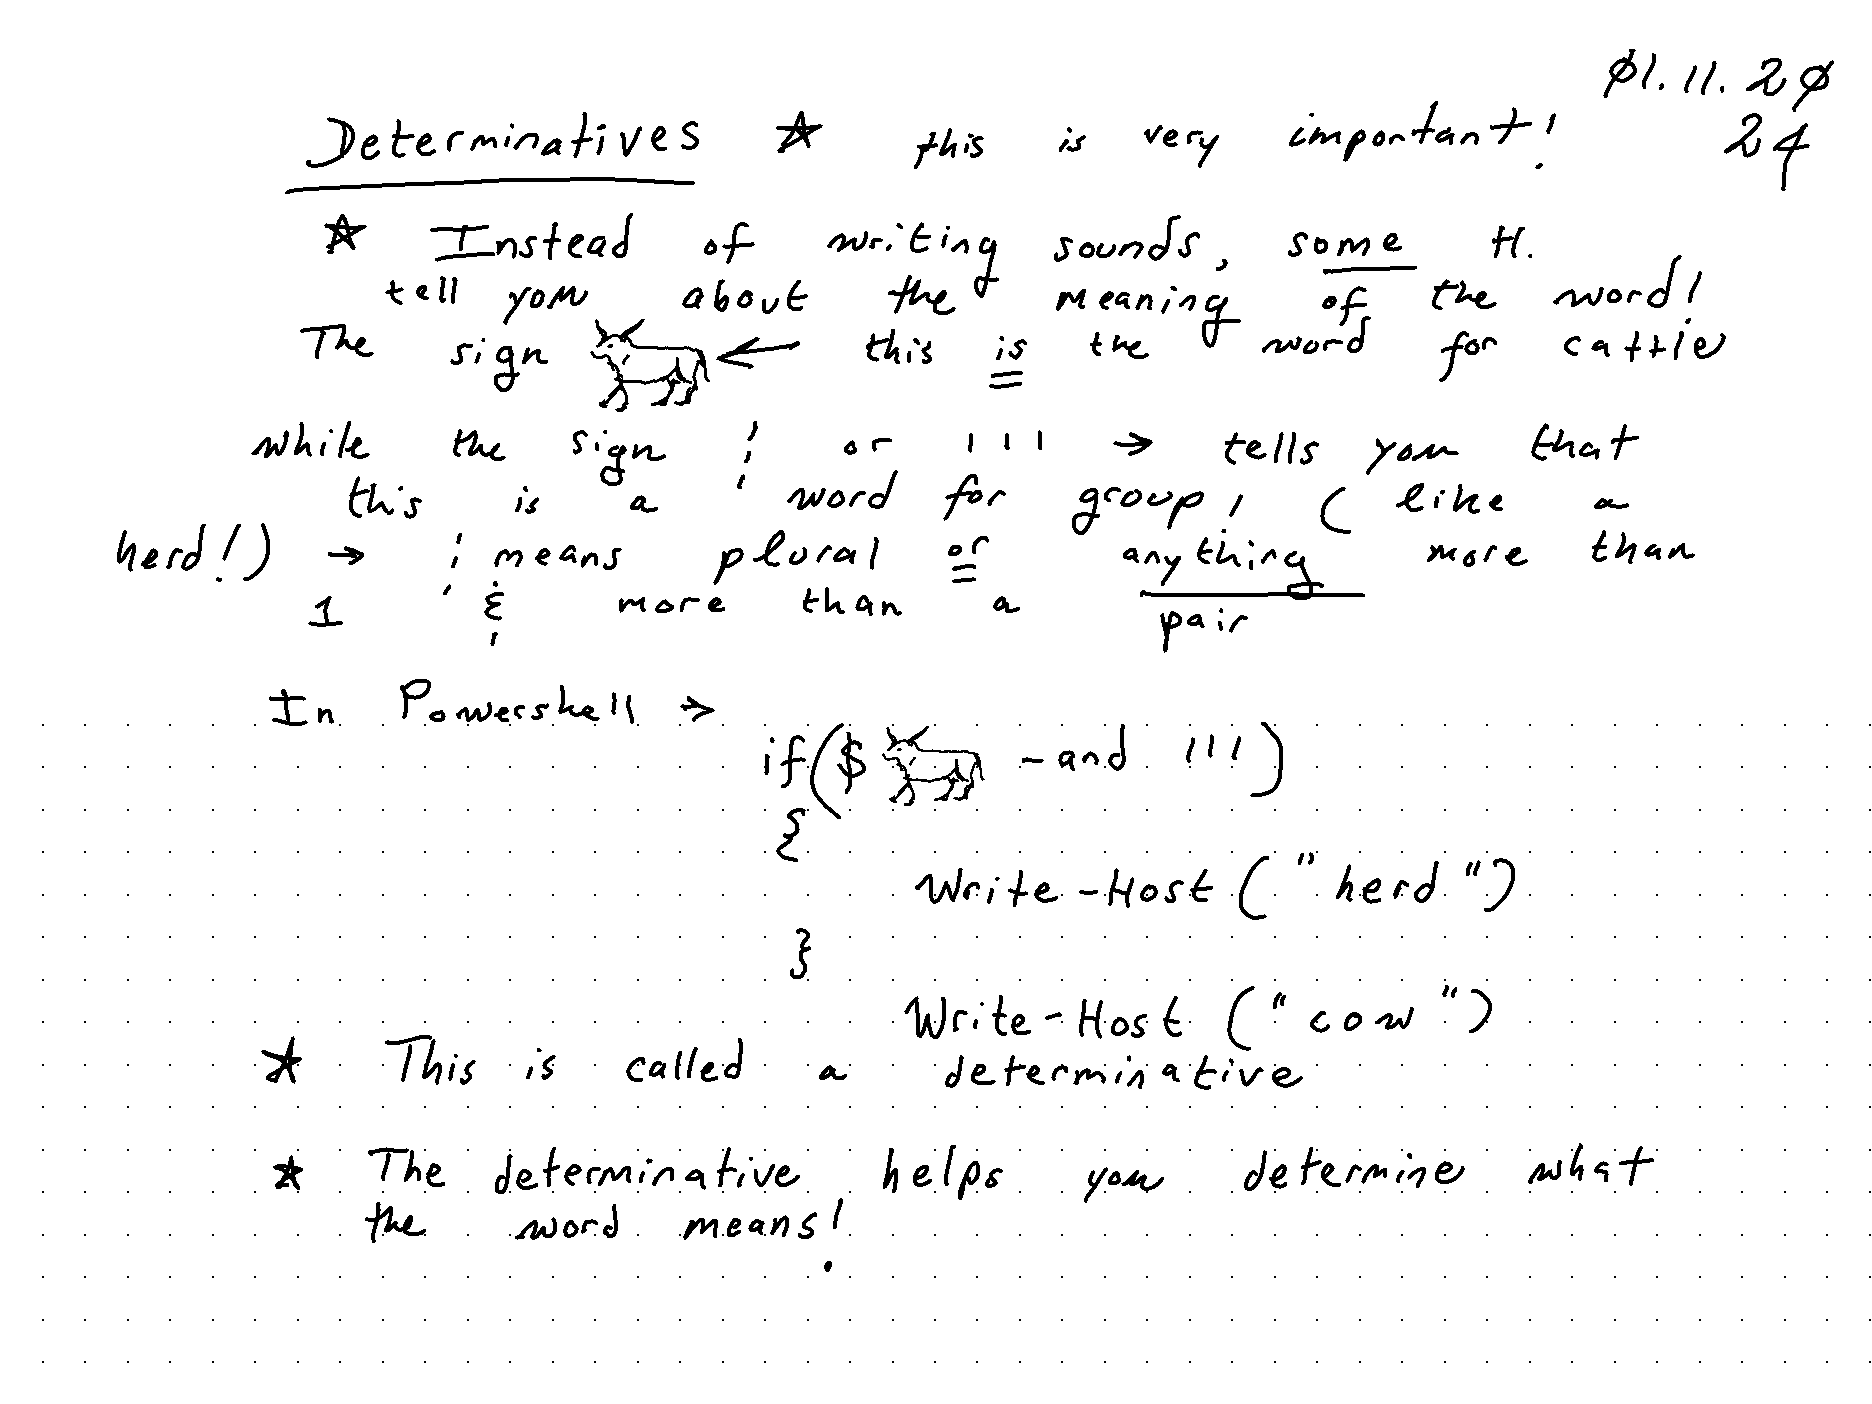 01.11.20
24
Determinatives ☆ this is very important!
☆ Instead of writing sounds, some H.
tell you about the meaning of the word!
The sign ← this is the word for cattle
while the sign ¦ or ııı → tells you that
this is a word for group, (like a
herd!) → ¦ means plural or anything more than
1 & more than a pair
In Powershell →
if($ -and ııı)
{
Write-Host("herd")
}
Write-Host("cow")
☆ This is called a determinative
☆ The determinative helps you determine what
the word means!